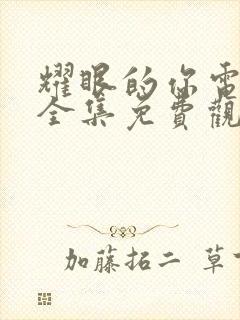 耀眼的你電
全集免費觀
加藤拓二 草